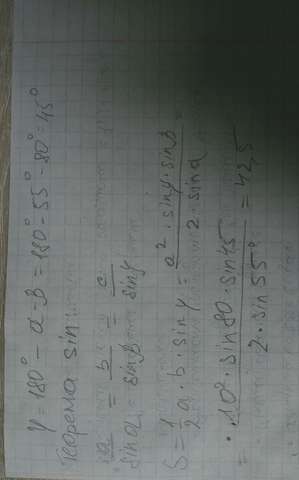 γ = 180° - α - β = 180° - 55° - 80° = 45°
Теорема sin:
a/sin α = b/sin β = c/sin γ
S = 1/2 a · b · sin γ = a² · sin γ · sin β / 2 · sin α
· 10² · sin 80 · sin 45 / 2 · sin 55° = 42,5